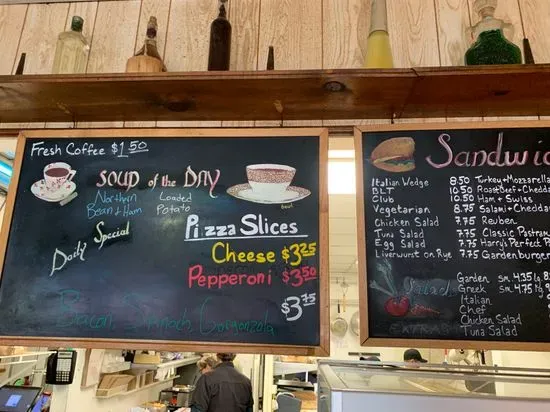 Fresh Coffee $1.50
SOUP of the DAY
Northern Bean & Ham
Loaded Potato
Daily Special
Pizza Slices
Cheese $3.25
Pepperoni $3.50
$3.75
Bacon, Spinach, Gorgonzola
Sandwic
Italian Wedge 8.50 Turkey & Mozzarella
BLT 10.50 Roast Beef & Chedda
Club 10.50 Ham & Swiss
Vegetarian 8.75 Salami & Chedda
Chicken Salad 7.75 Reuben
Tuna Salad 7.75 Classic Pastram
Egg Salad 7.75 Harry's Perfect P
Liverwurst on Rye 7.75 Gardenburger
Salad
Garden sm 4.35 lg 8.
Greek sm 4.75
Italian
Chef
Chicken Salad
Tuna Salad